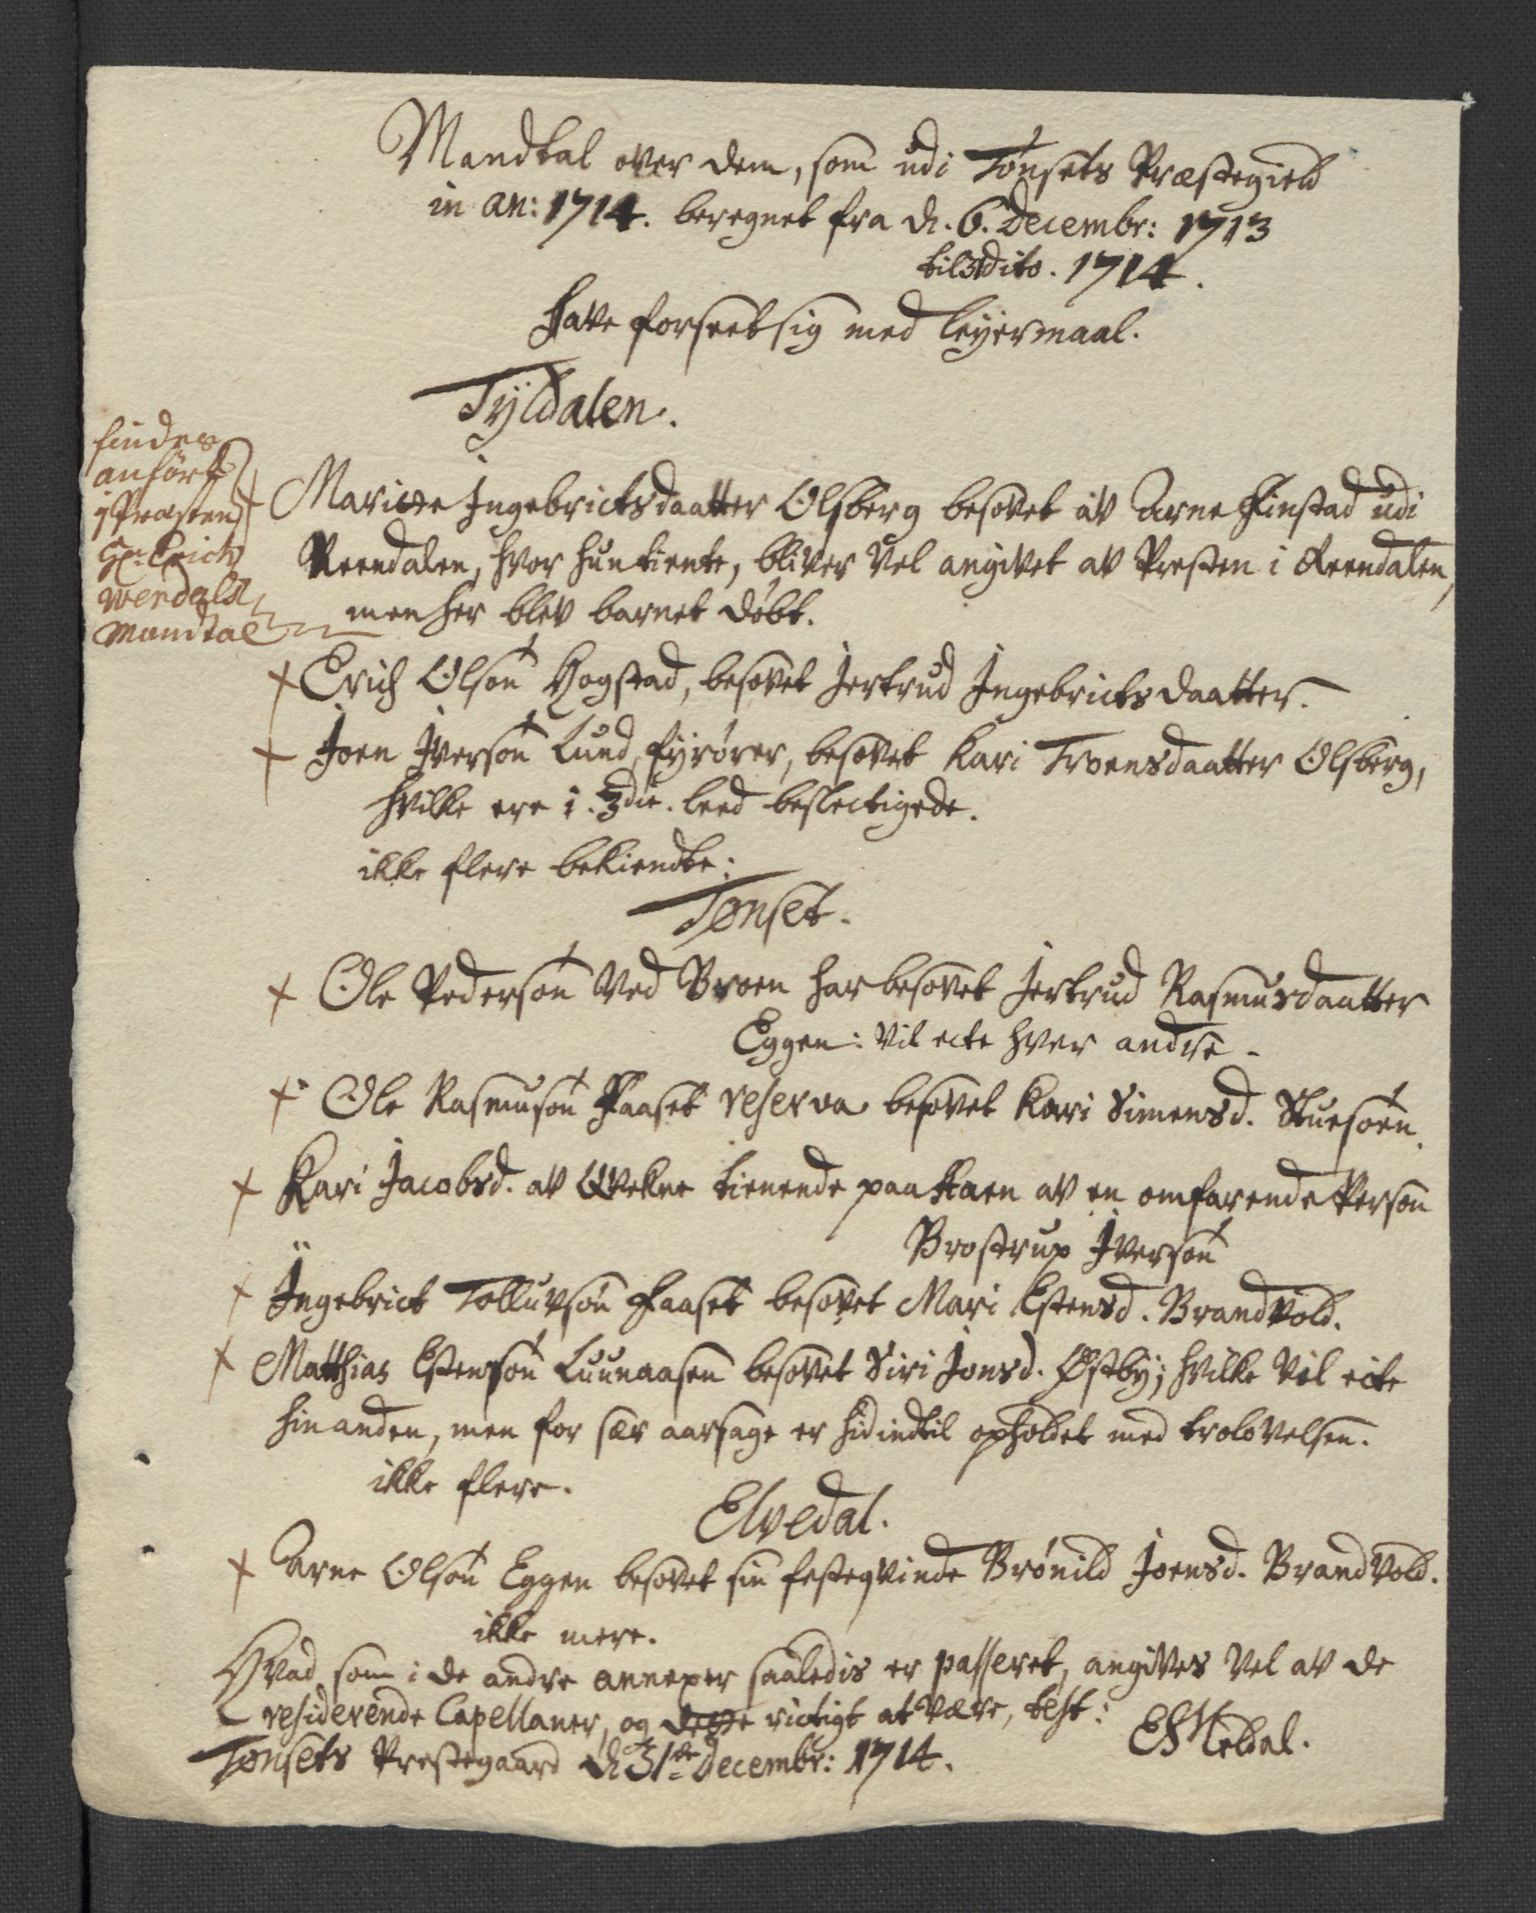 Mandtal over dem, som udi Tönsets Præstegield
in an: 1714. beregnet fra d. 6. Decembr: 1713
til 31 dito. 1714.
have forseet sig med leÿermaal.
Tÿldalen.
findes
anført
i Præsten
Hr. Erich
Mandtal
Maritte Ingebrictsdaatter Olsberg besovet av Arne Finstad udi
Reendalen, hvor hun tiente, bliver vel angivet av Presten i Reendalen,
men her blev barnet döbt.
+ Erich Olsön Hogstad, besovet Jertrud Ingebrictsdaatter.
+ Joen Iversön Lund, fÿrörer, besovet Kari Troensdaatter Olsberg,
hvilke ere i. 3die. leed beslectigede.
ikke flere bekiendte:
Tönset.
+ Ole Pedersön Ved Broen har besovet Jertrud Rasmusdaatter
Eggen: vil ecte hver andre.
+ Ole Rasmusön Faaset reserva besovet Kari Simensd. Stuesöen.
+ Kari Jacobsd. av Qvekne tienende paa Aaen av en omfarende Person
Brostrup Iversön
+ Ingebrict Tolluvsön Faaset besovet Mari Estensd. Brandvold.
+ Matthias Estensön Luunaasen besovet Siri Jonsd. Östby; hvilke vil ecte
hinanden, men for sær aarsage er hid indtil opholdet med trolovelsen.
ikke flere.
Elvedal.
+ Arne Olsön Eggen besovet sin festeqvinde Brönild Joensd. Brandvold.
ikke mere.
Hvad som i de andre annexer saaledis er passeret, angives vel av de
residerende Capellaner, og dette rictigt at være, test:
Tönsets Prestegaard d. 31de Decembr: 1714.